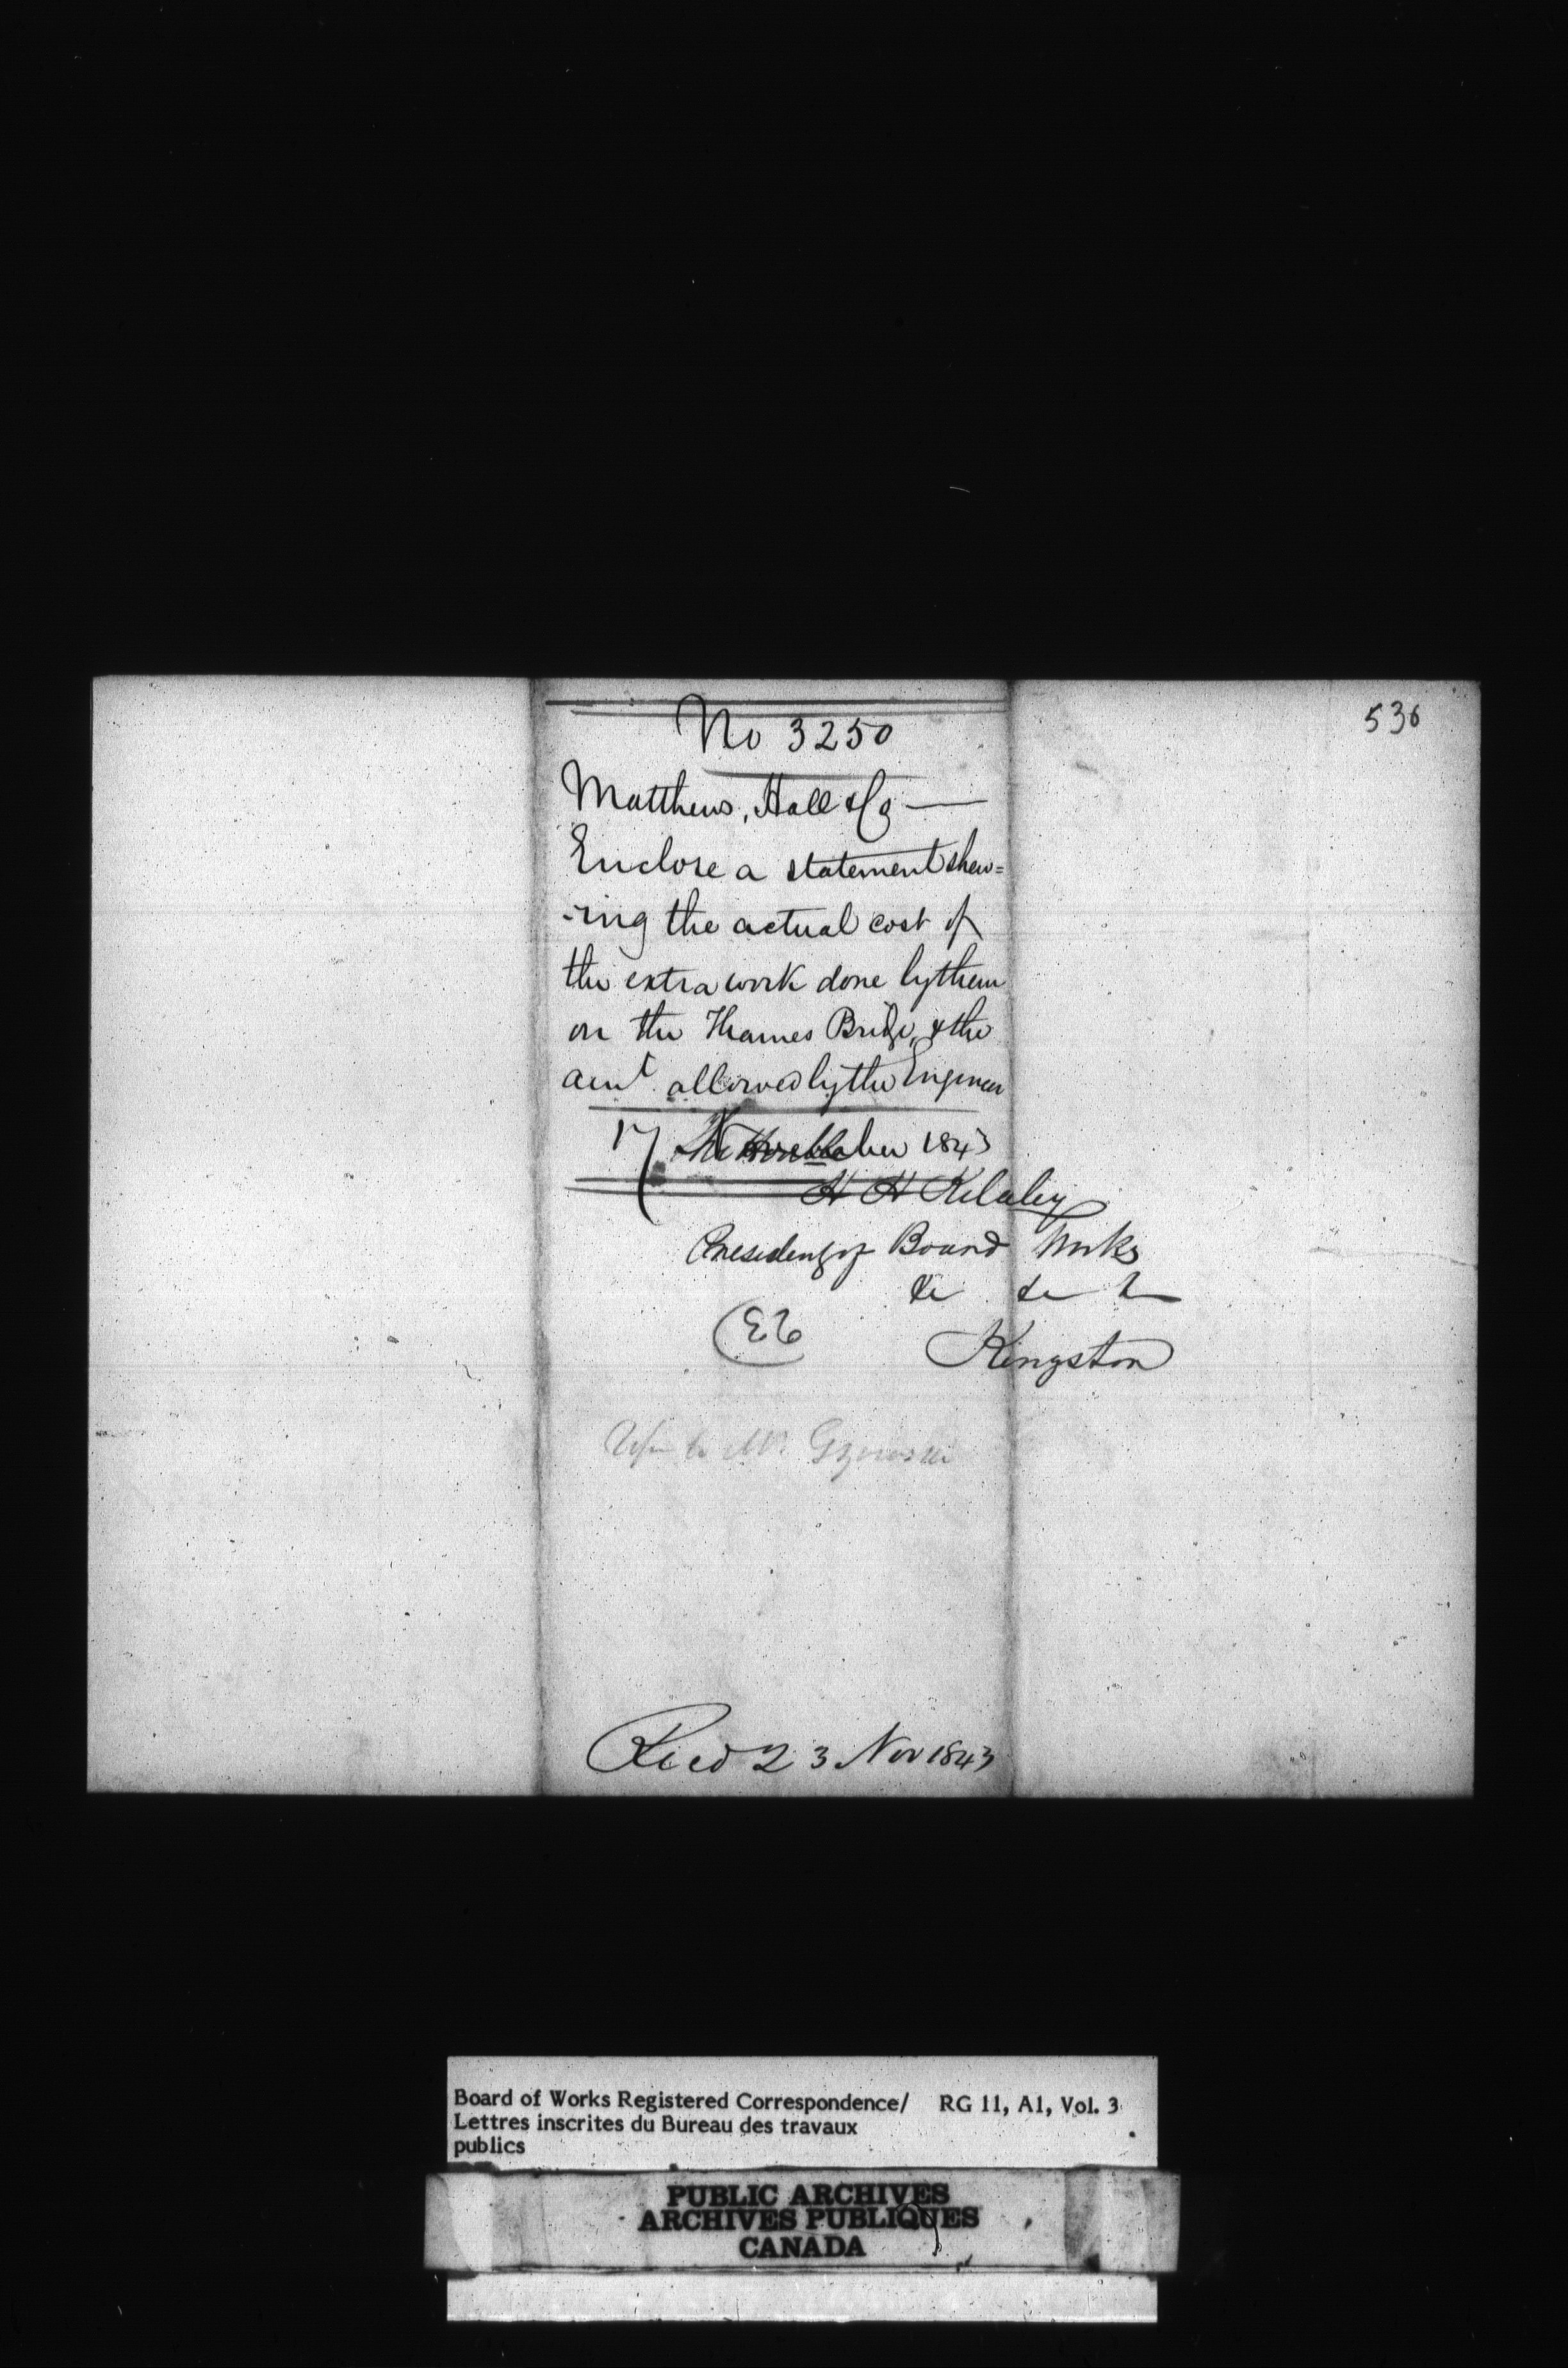 536
No 3250
Matthews, Hall & Co
Enclose a statement shew=
-ing the actual cost of
the extra work done by them
on the Thames Bridge, & the
amt. allowed by the Engineer
17 November 1843
The Honble
H H Killaly
President of Board Works
&c &c &c
Kingston
Refer to Mr. Gzowski
Recd 23 Nov 1843
Board of Works Registered Correspondence/ RG 11, A1, Vol. 3
Lettres inscrites du Bureau des travaux
publics
PUBLIC ARCHIVES
ARCHIVES PUBLIQUES
CANADA